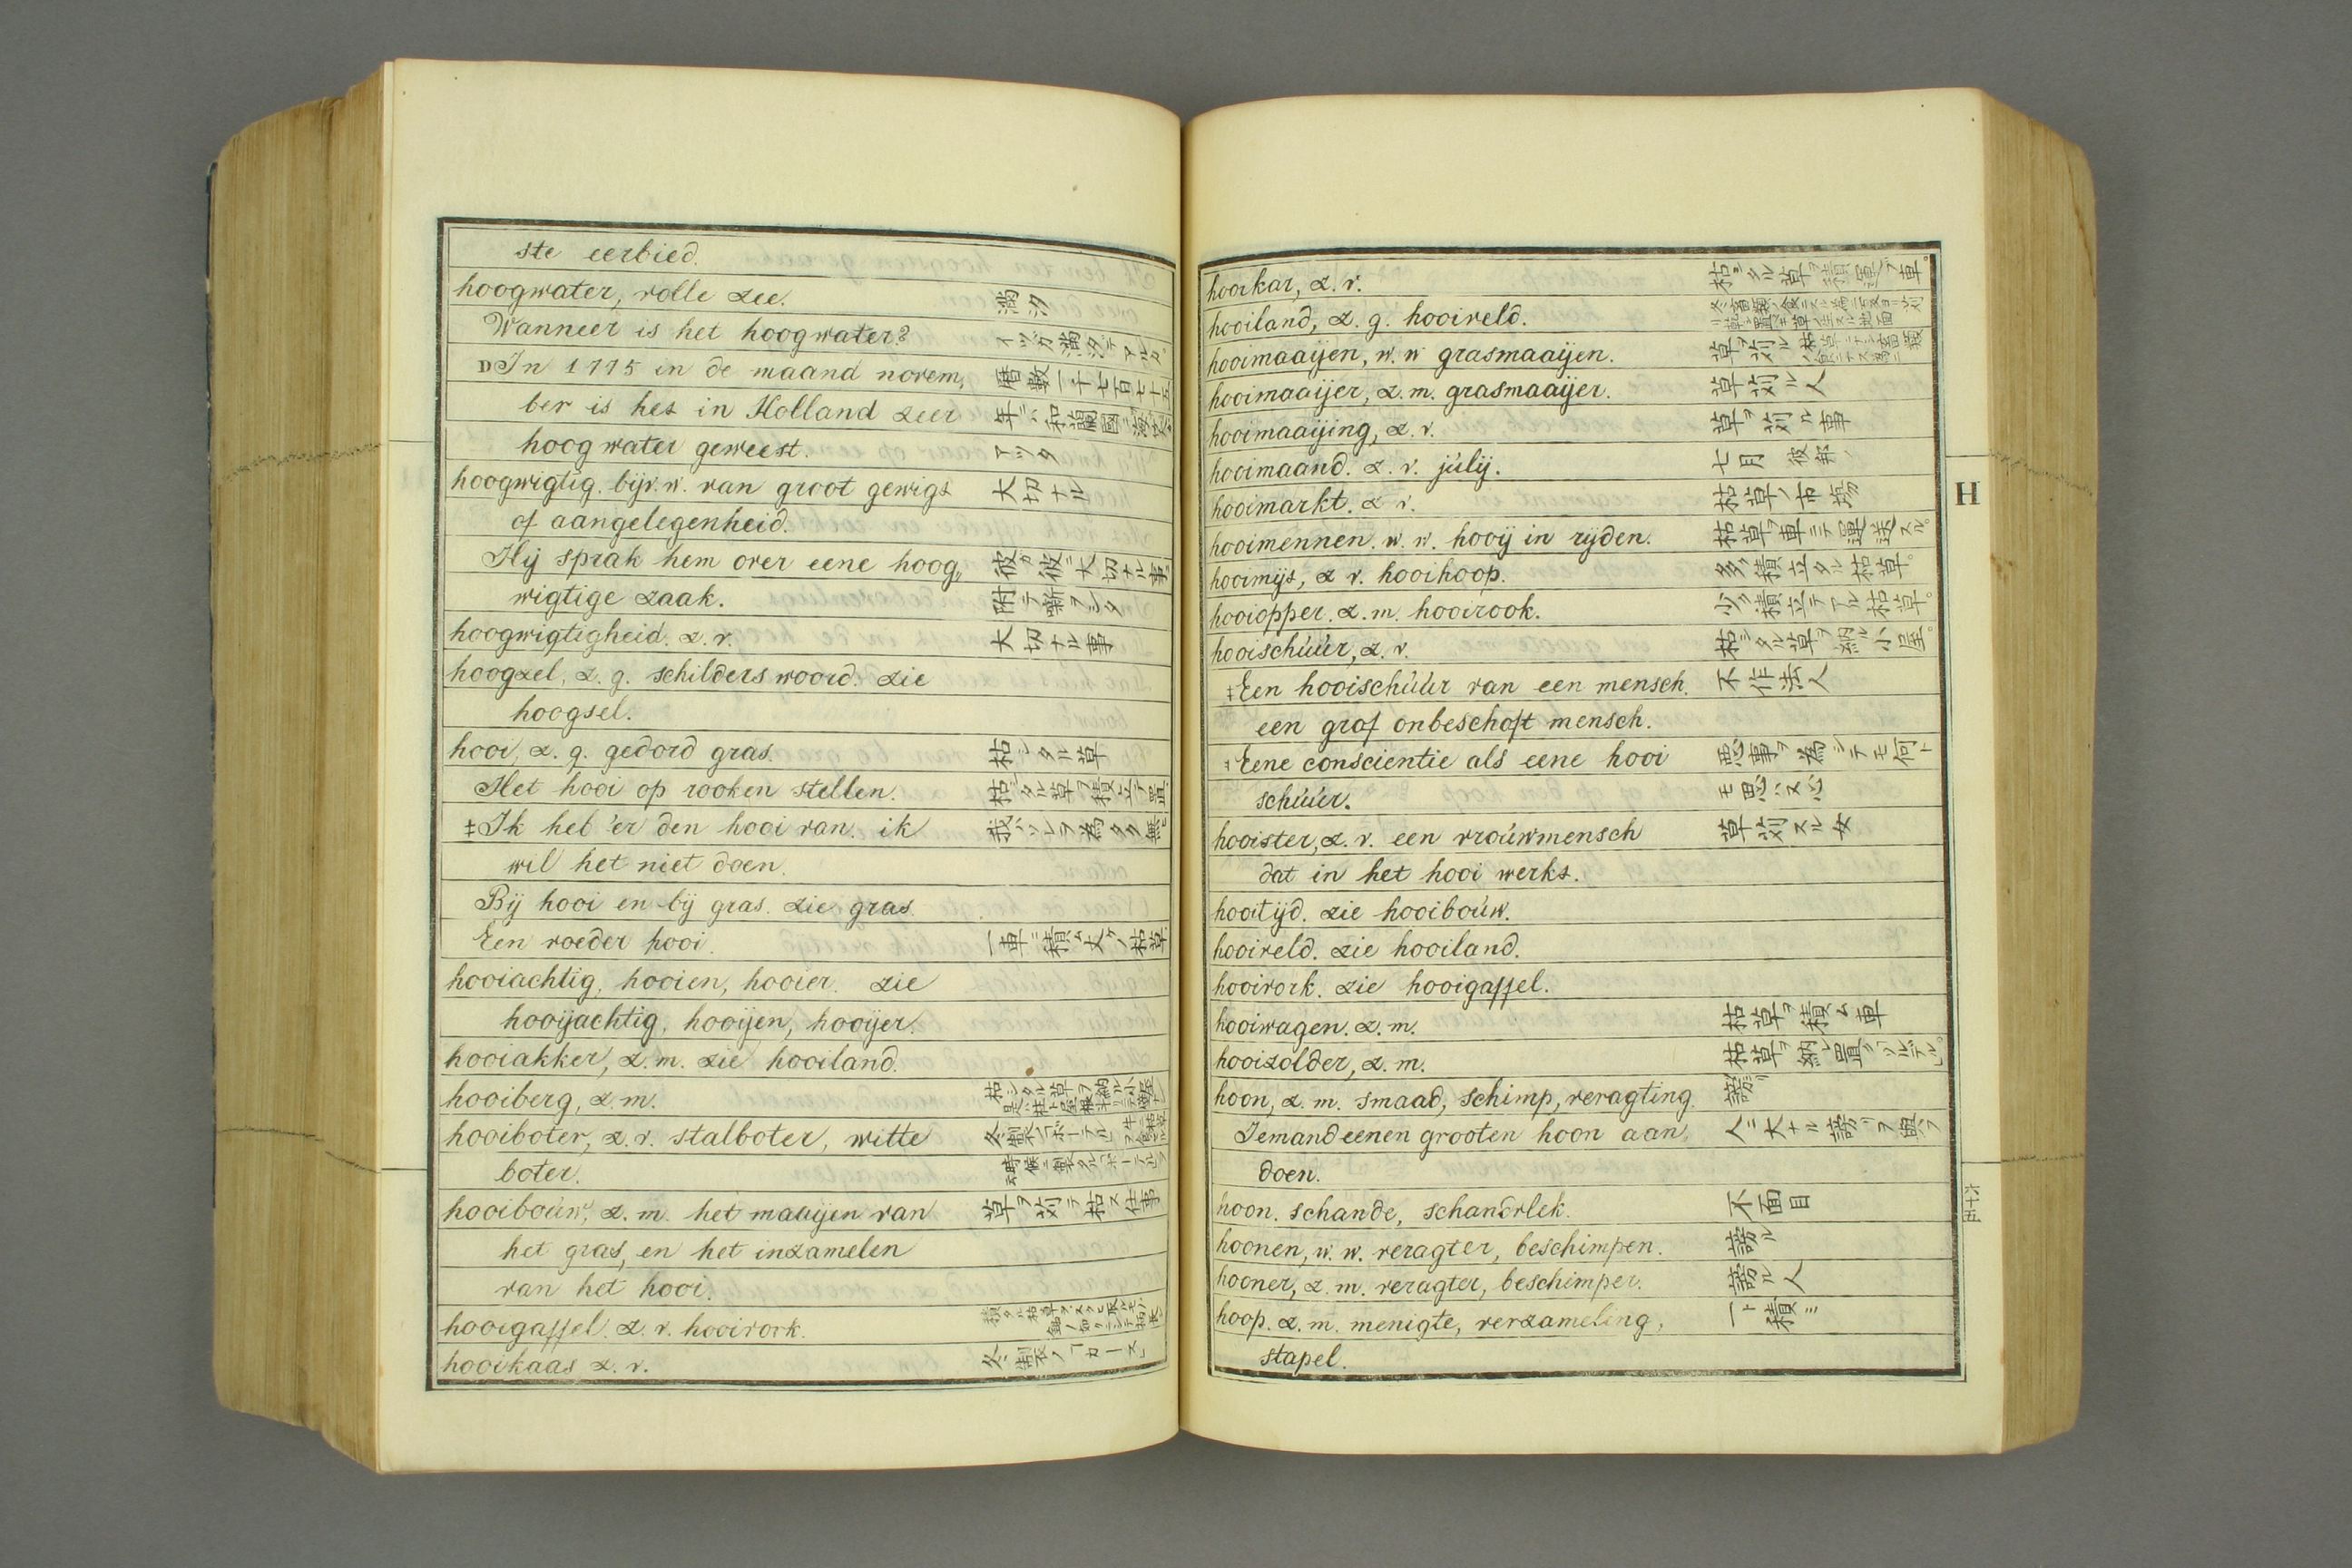 ste eerbied.
hoogwater, volle zee. 満汐
Wanneer is het hoogwater? イツガ満汐デアルカ
DIn 1775 in de maand novem, 暦數一千七百七十五
ber is het in Holland zeer 年ニハ和蘭國ニ
hoog water geweest. アツタ
hoogwigtig. bijv. w. van groot gewigt 大切ナル
of aangelegenheid.
Hij sprak hem over eene hoog, 彼ガ彼ニ大切ナル事ニ
wigtige zaak. 附テ噺ヲシタ
hoogwigtigheid. z. v. 大切ナル事
hoogzel, z. g. schilders woord. zie
hoogsel.
hooi, z. g. gedord gras. 枯シタル草
Het hooi op rooken stellen. 枯シタル草ヲ積立テ置
‡Ik heb 'er den hooi van. ik 我ハソレヲ為タク無
wil het niet doen.
Bij hooi en bij gras. zie gras.
Een voeder hooi. 一車ニ積ム丈ケノ枯草
hooiachtig, hooien, hooier. zie
hooijachtig, hooijen, hooijer.
hooiakker, z. m. zie hooiland.
hooiberg, z. m. 枯シタル草ヲ納ル小屋
hooiboter, z. v. stalboter, witte 冬製ノ「ボートル」
boter.
hooibouw, z. m. het maaijen van 草ヲ苅テ枯ス仕事
het gras, en het inzamelen
van het hooi.
hooigaffel. z. v. hooivork.
hooikaas z. v. 冬製ノ「カース」
hooikar, z. v. 枯シタル草ヲ積運フ車。
hooiland, z. g. hooiveld.
hooimaaijen, w. w grasmaaijen. 草ヲ苅ル
hooimaaijer, z. m. grasmaaijer. 草苅ル人
hooimaaijing, z. v. 草ヲ苅ル事
hooimaand. z. v. julij. 七月 彼邦ノ
hooimarkt. z v. 枯草ノ市場
hooimennen. w. w. hooij in rijden. 枯草ヲ車ニテ運送スル。
hooimijt, z v. hooihoop. 多ク積立タル枯草。
hooiopper. z. m. hooirook. 少シ積立テアル枯草。
hooischuur, z. v. 枯シタル草ヲ納ル小屋。
‡Een hooischuur van een mensch. 不作法人
een grof onbeschoft mensch.
‡Eene conscientie als eene hooi 悪事ヲ為シテモ何ト
schuur. モ思ハヌ心
hooister, z. v. een vrouwmensch 草苅スル女
dat in het hooi werkt.
hooitijd. zie hooibouw.
hooiveld. zie hooiland.
hooivork. zie hooigaffel.
hooiwagen. z. m. 枯草ヲ積ム車
hooizolder, z. m. 枯草ヲ納レ置ク「ソルデル」。
hoon, z. m. smaad, schimp, veragting. 謗リ
Iemand eenen grooten hoon aan, 人ニ大ナル謗リヲ與フ
doen.
hoon. schande, schandvlek. 不面目
hoonen, w. w. veragter, beschimpen. 謗ル
hooner, z. m. veragter, beschimper. 謗ル人
hoop. z. m. menigte, verzameling, 一ト積ミ
stapel.
H